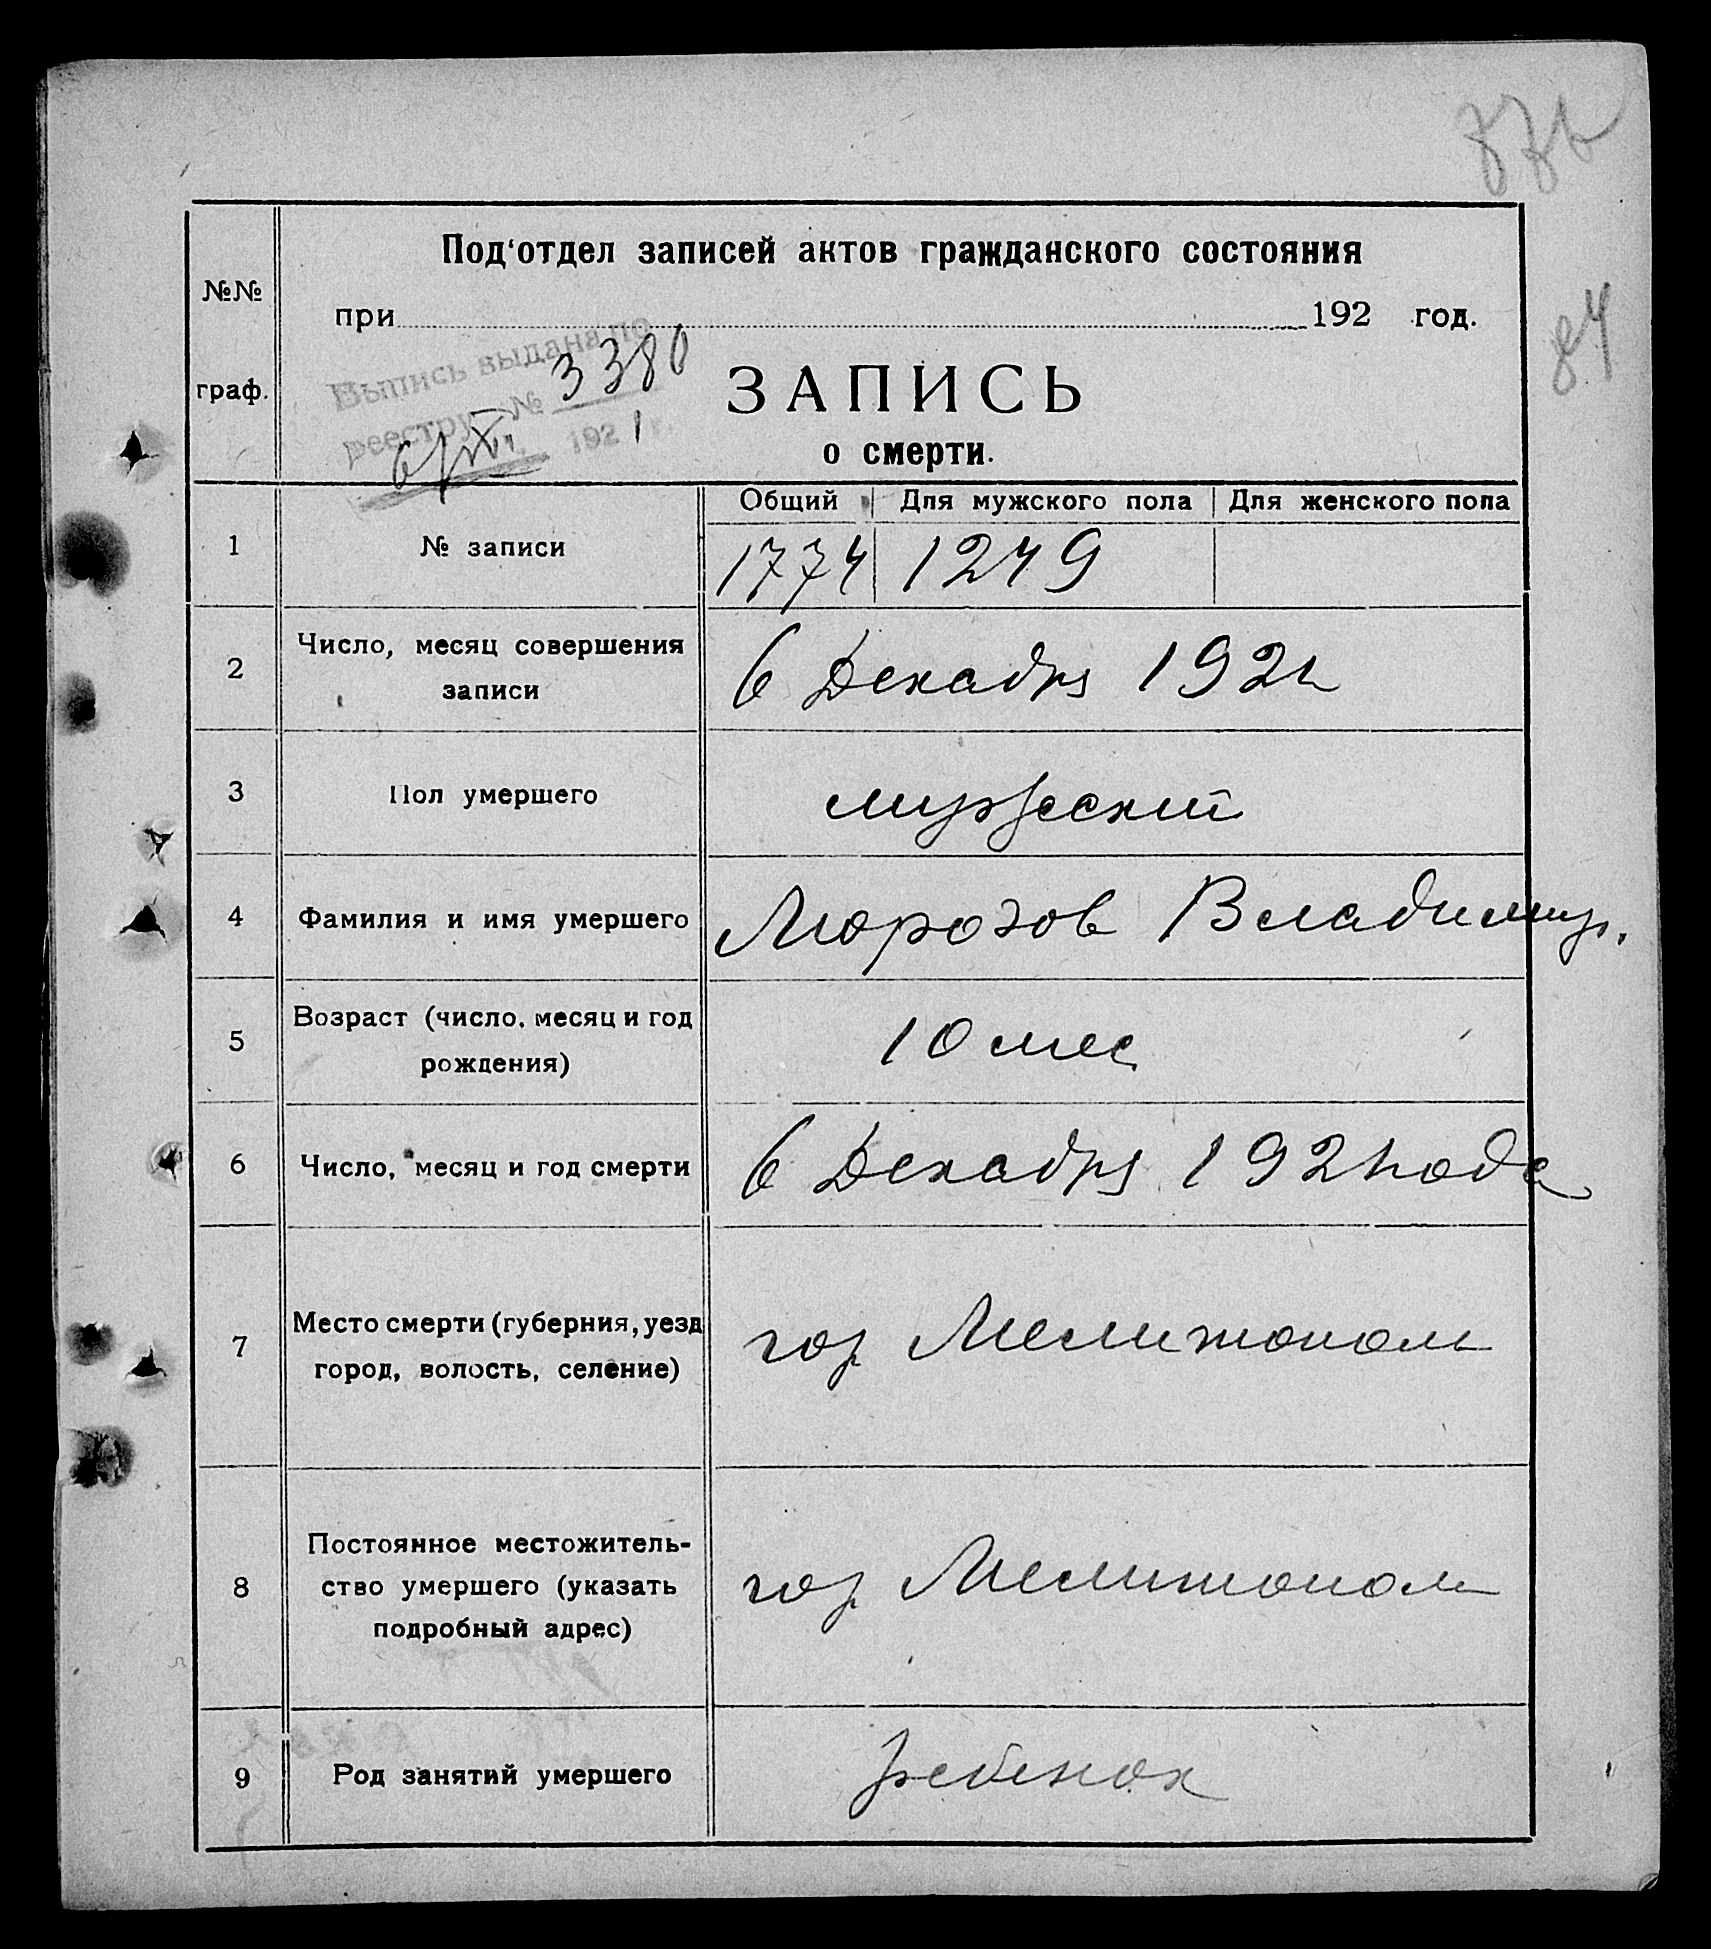 87
№№
граф.
Под‘отдел записей актов гражданского состояния
при 192 год.
Выпись выдана по
реестру № 3380
6/XII 1921 г.
ЗАПИСЬ
о смерти.
Общий Для мужского пола Для женского пола
1 № записи 1774 1249
2 Число, месяц совершения
записи
6 Декабря 1921
3 Пол умершего мужеский
4 Фамилия и имя умершего Морозов Владимир.
5 Возраст (число, месяц и год
рождения)
10 мес
6 Число, месяц и год смерти 6 Декабря 1921 года
7 Место смерти (губерния, уезд
город, волость, селение)
гор Мелитополь
8 Постоянное местожитель-
ство умершего (указать
подробный адрес)
гор Мелитополь
9 Род занятий умершего ребенок